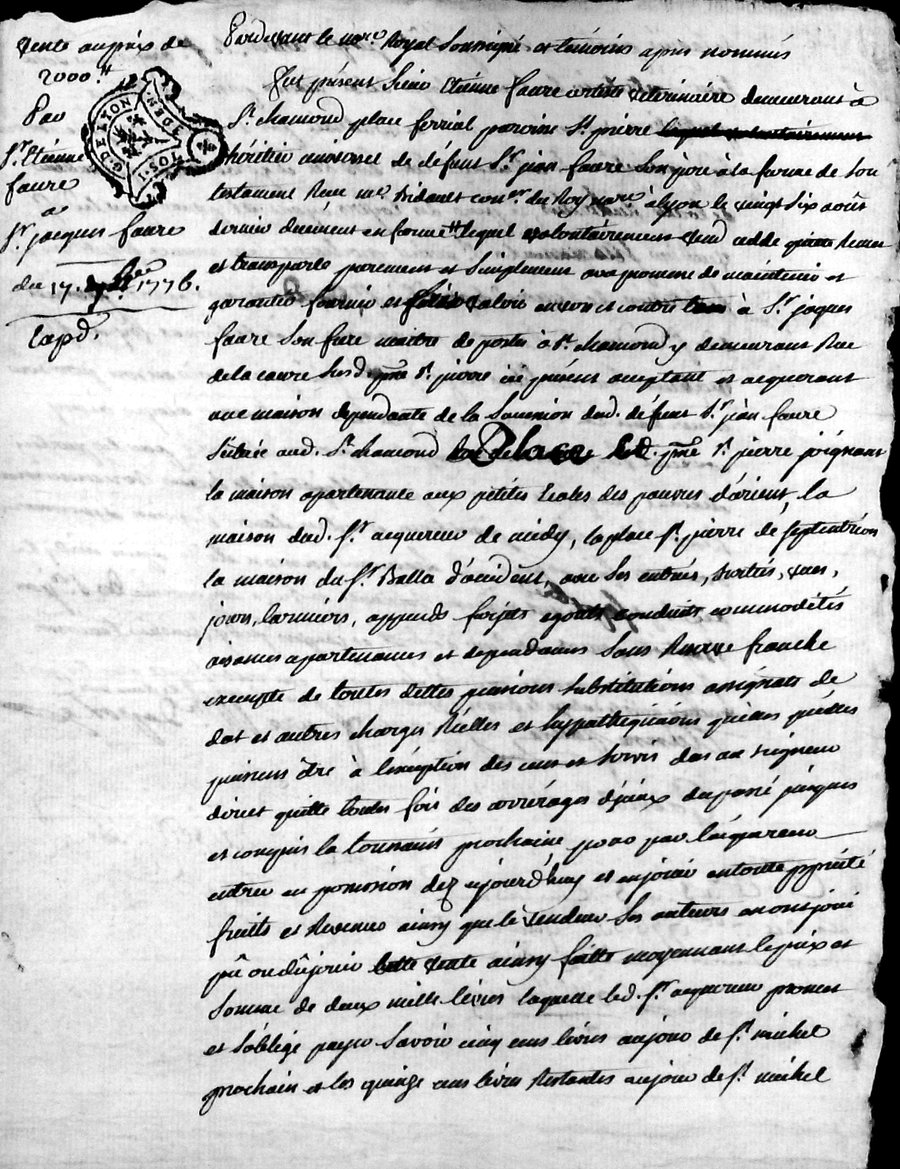 Vente au prix de
2000.ᵗᵗ
Par
Sʳ. Etienne
faure
a
Sʳ. jacques faure
du 17. 7bre 1776.
Cap.d.
G. DE LYON
Pardevant le noʳᵉ Royal Soussigné et témoins apres nommés
fut présent Sieur Etienne faure artiste vétérinaire demeurant à
St. chamond place ferrial paroisse St. pierre lequel volontairement
héritier universel de défunt Sʳ. jean faure Son pere à la forme de Son
testament Reçu me Bidault conᵉʳ. du Roy noʳᵉ à lyon le vingt Six août
dernier duement en forme lequel volontairement vend cedde quitte Remet
et transporte purement et Simplement avec promesse de maintenir et
garantir fournir et faire valoir envers et contre tous à Sʳ. jaques
faure Son frere maitre de postes à St. chamond y demeurant Rue
de la Susd. psse St. pierre ici présent acceptant et acquerant
une maison dependante de la Succession dud. défunt Sʳ. jean faure
Située aud. St. chamond Place Sud. psse St. pierre joignant
la maison apartenante aux petites Ecoles des pauvres d'orient, la
maison dud. Sʳ. acquereur de midy, la place St. pierre de Septentrion
la maison du Sʳ. Balla d'occident, avec Ses entrées, Sorties, vues,
jours, larmiers, appends forjets egouts conduits commodités
aisances apartenances et dependances Sans Reserve franche
exempte de toutes dettes pensions Substitutions assignats de
dot et autres charges Réelles et hyppothequaires quelles quelles
puissent être à l'exception des cens et Servis dus au Seigneur
direct quitte toutes fois des arrérages d'iceux du passé jusques
et compris la toussaint prochaine pour par l'acquereur
entrer en possession dez aujourd'huy et en jouir en toutte proprieté
fruits et Revenus ainsy que le vendeur Ses auteurs en ont joui
pû ou dû jouir Cette vente ainsy faitte moyennant le prix et
Somme de deux mille livres laquelle led. Sʳ. acquereur promet
et S'oblige payer Savoir cinq cens livres au jour de St. michel
prochain et les quinze cens livres Restantes au jour de St. michel